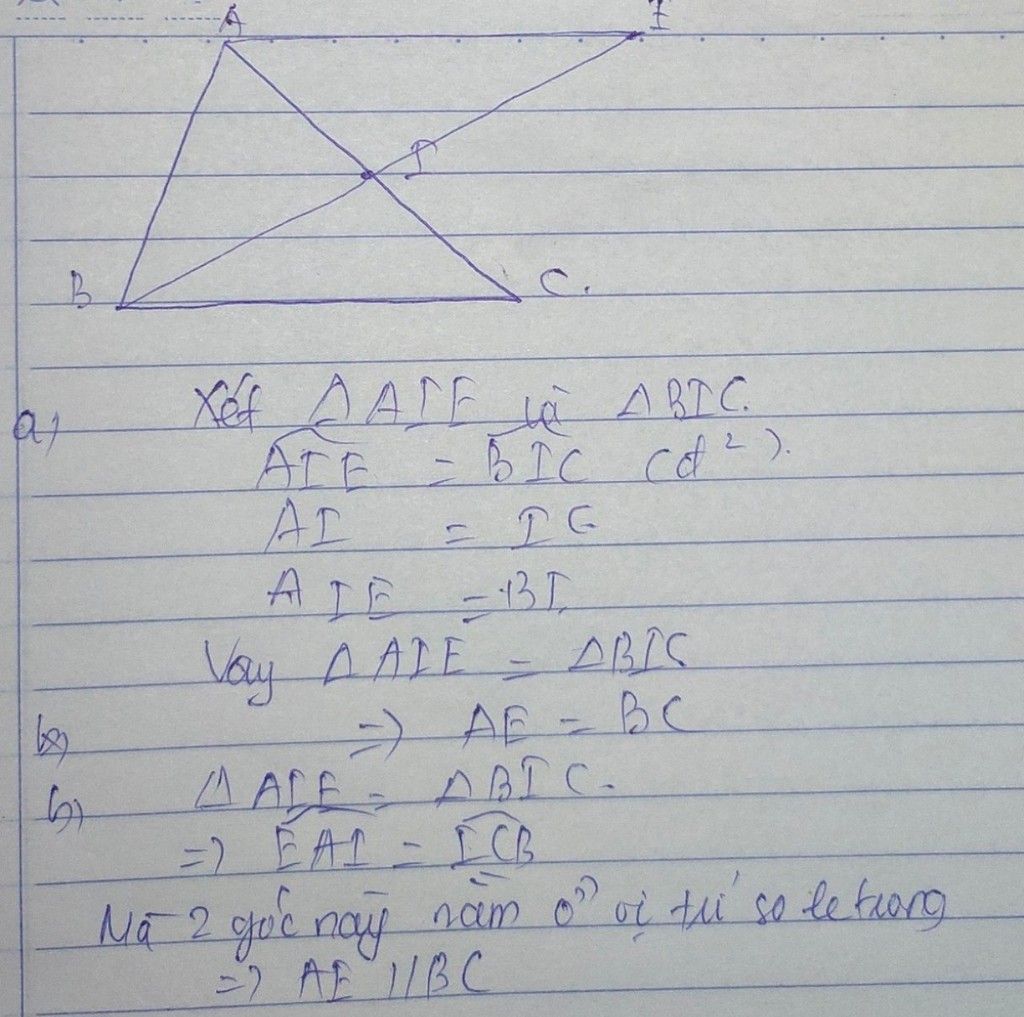 A
E
I
B
C.
a) Xét ΔAIE và ΔBIC.
AIE = BIC (đ²).
AI = IC
A IE = BI.
Vay ΔAIE = ΔBIC
=> AE = BC
b) ΔAIE = ΔBIC.
=> EAI = ICB
Mà 2 góc này nằm ở vị trí so le trong
=> AE // BC